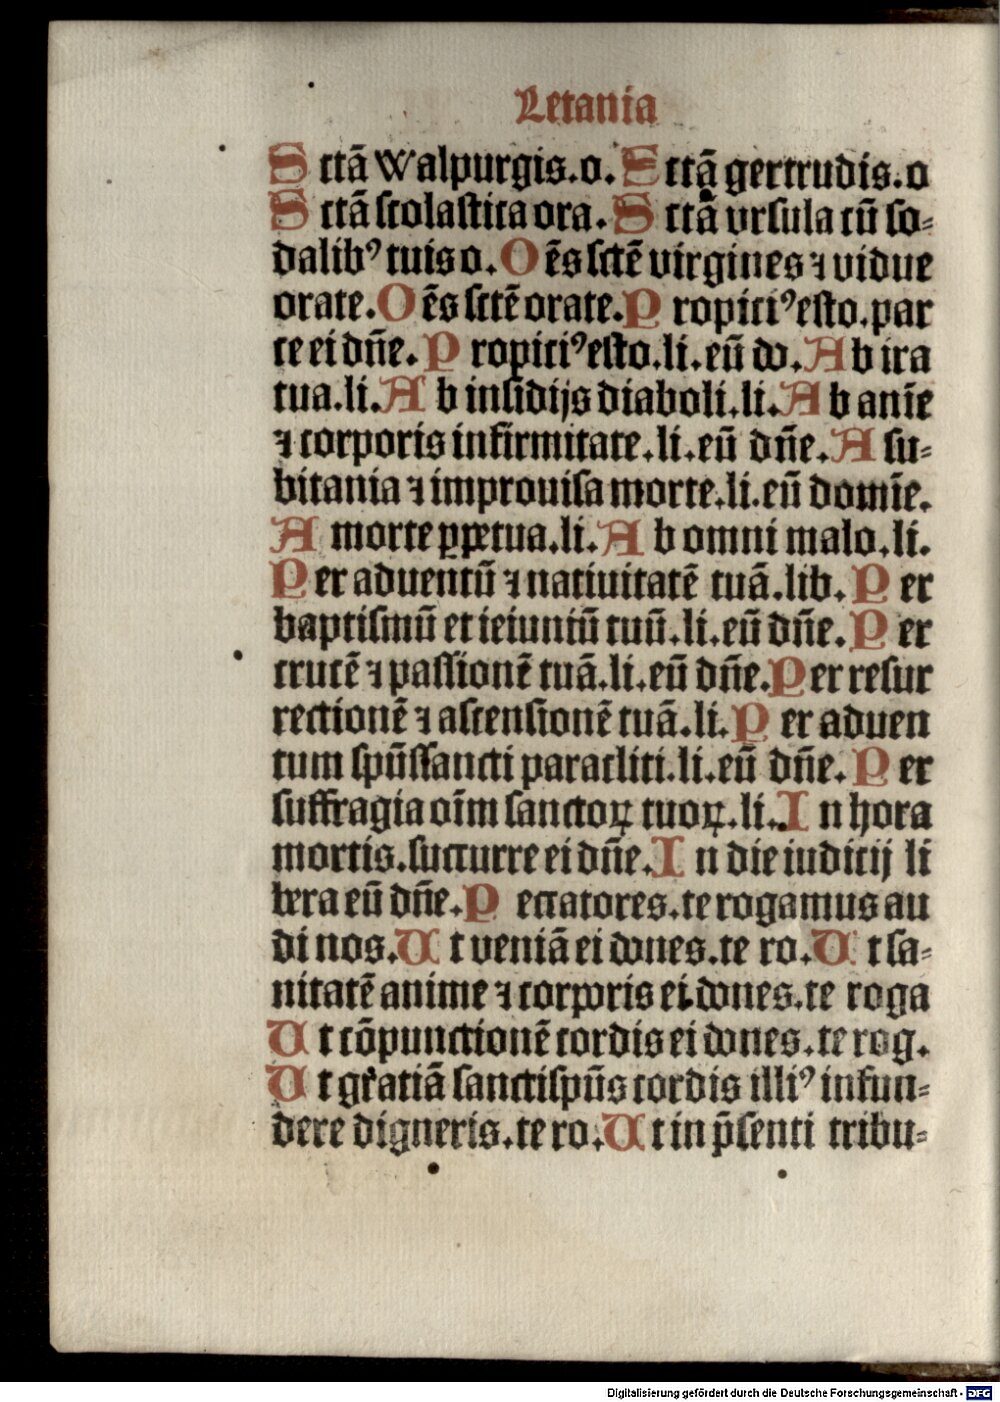 Letania
Sctā walpurgis.o. Sctā gertrudis.o
Sctā scolastica ora. Sctā vrsula cū so⸗
dalibꝰ tuis o. Oēs sctē virgines ⁊ vidue
orate. Oēs sctē orate. Propiciꝰ esto.par
ce ei dn̄e. Propiciꝰ esto.li.eū do. Ab ira
tua.li. Ab insidijs diaboli.li. Ab anīe
⁊ corporis infirmitate.li.eū dn̄e. A su⸗
bitania ⁊ improuisa morte.li.eū domīe.
A morte ꝑpetua.li. Ab omni malo.li.
Per aduentū ⁊ natiuitatē tuā.lib. Per
baptismū et ieiuniū tuū.li.eū dn̄e. Per
crucē ⁊ passionē tuā.li.eū dn̄e. Per resur
rectionē ⁊ ascensionē tuā.li. Per aduen
tum spūssancti paracliti.li.eū dn̄e. Per
suffragia oīm sanctoꝝ tuoꝝ.li. In hora
mortis.succurre ei dn̄e. In die iudicij li
bera eū dn̄e. Peccatores.te rogamus au
di nos. Ut veniā ei dones.te ro. Ut sa⸗
nitatē anime ⁊ corporis ei dones.te roga
Ut cōpunctionē cordis ei dones.te rog.
Ut gr̄atiā sanctispūs cordis illiꝰ infun⸗
dere digneris.te ro. Ut in p̄senti tribu⸗
Digitalisierung gefördert durch die Deutsche Forschungsgemeinschaft - DFG